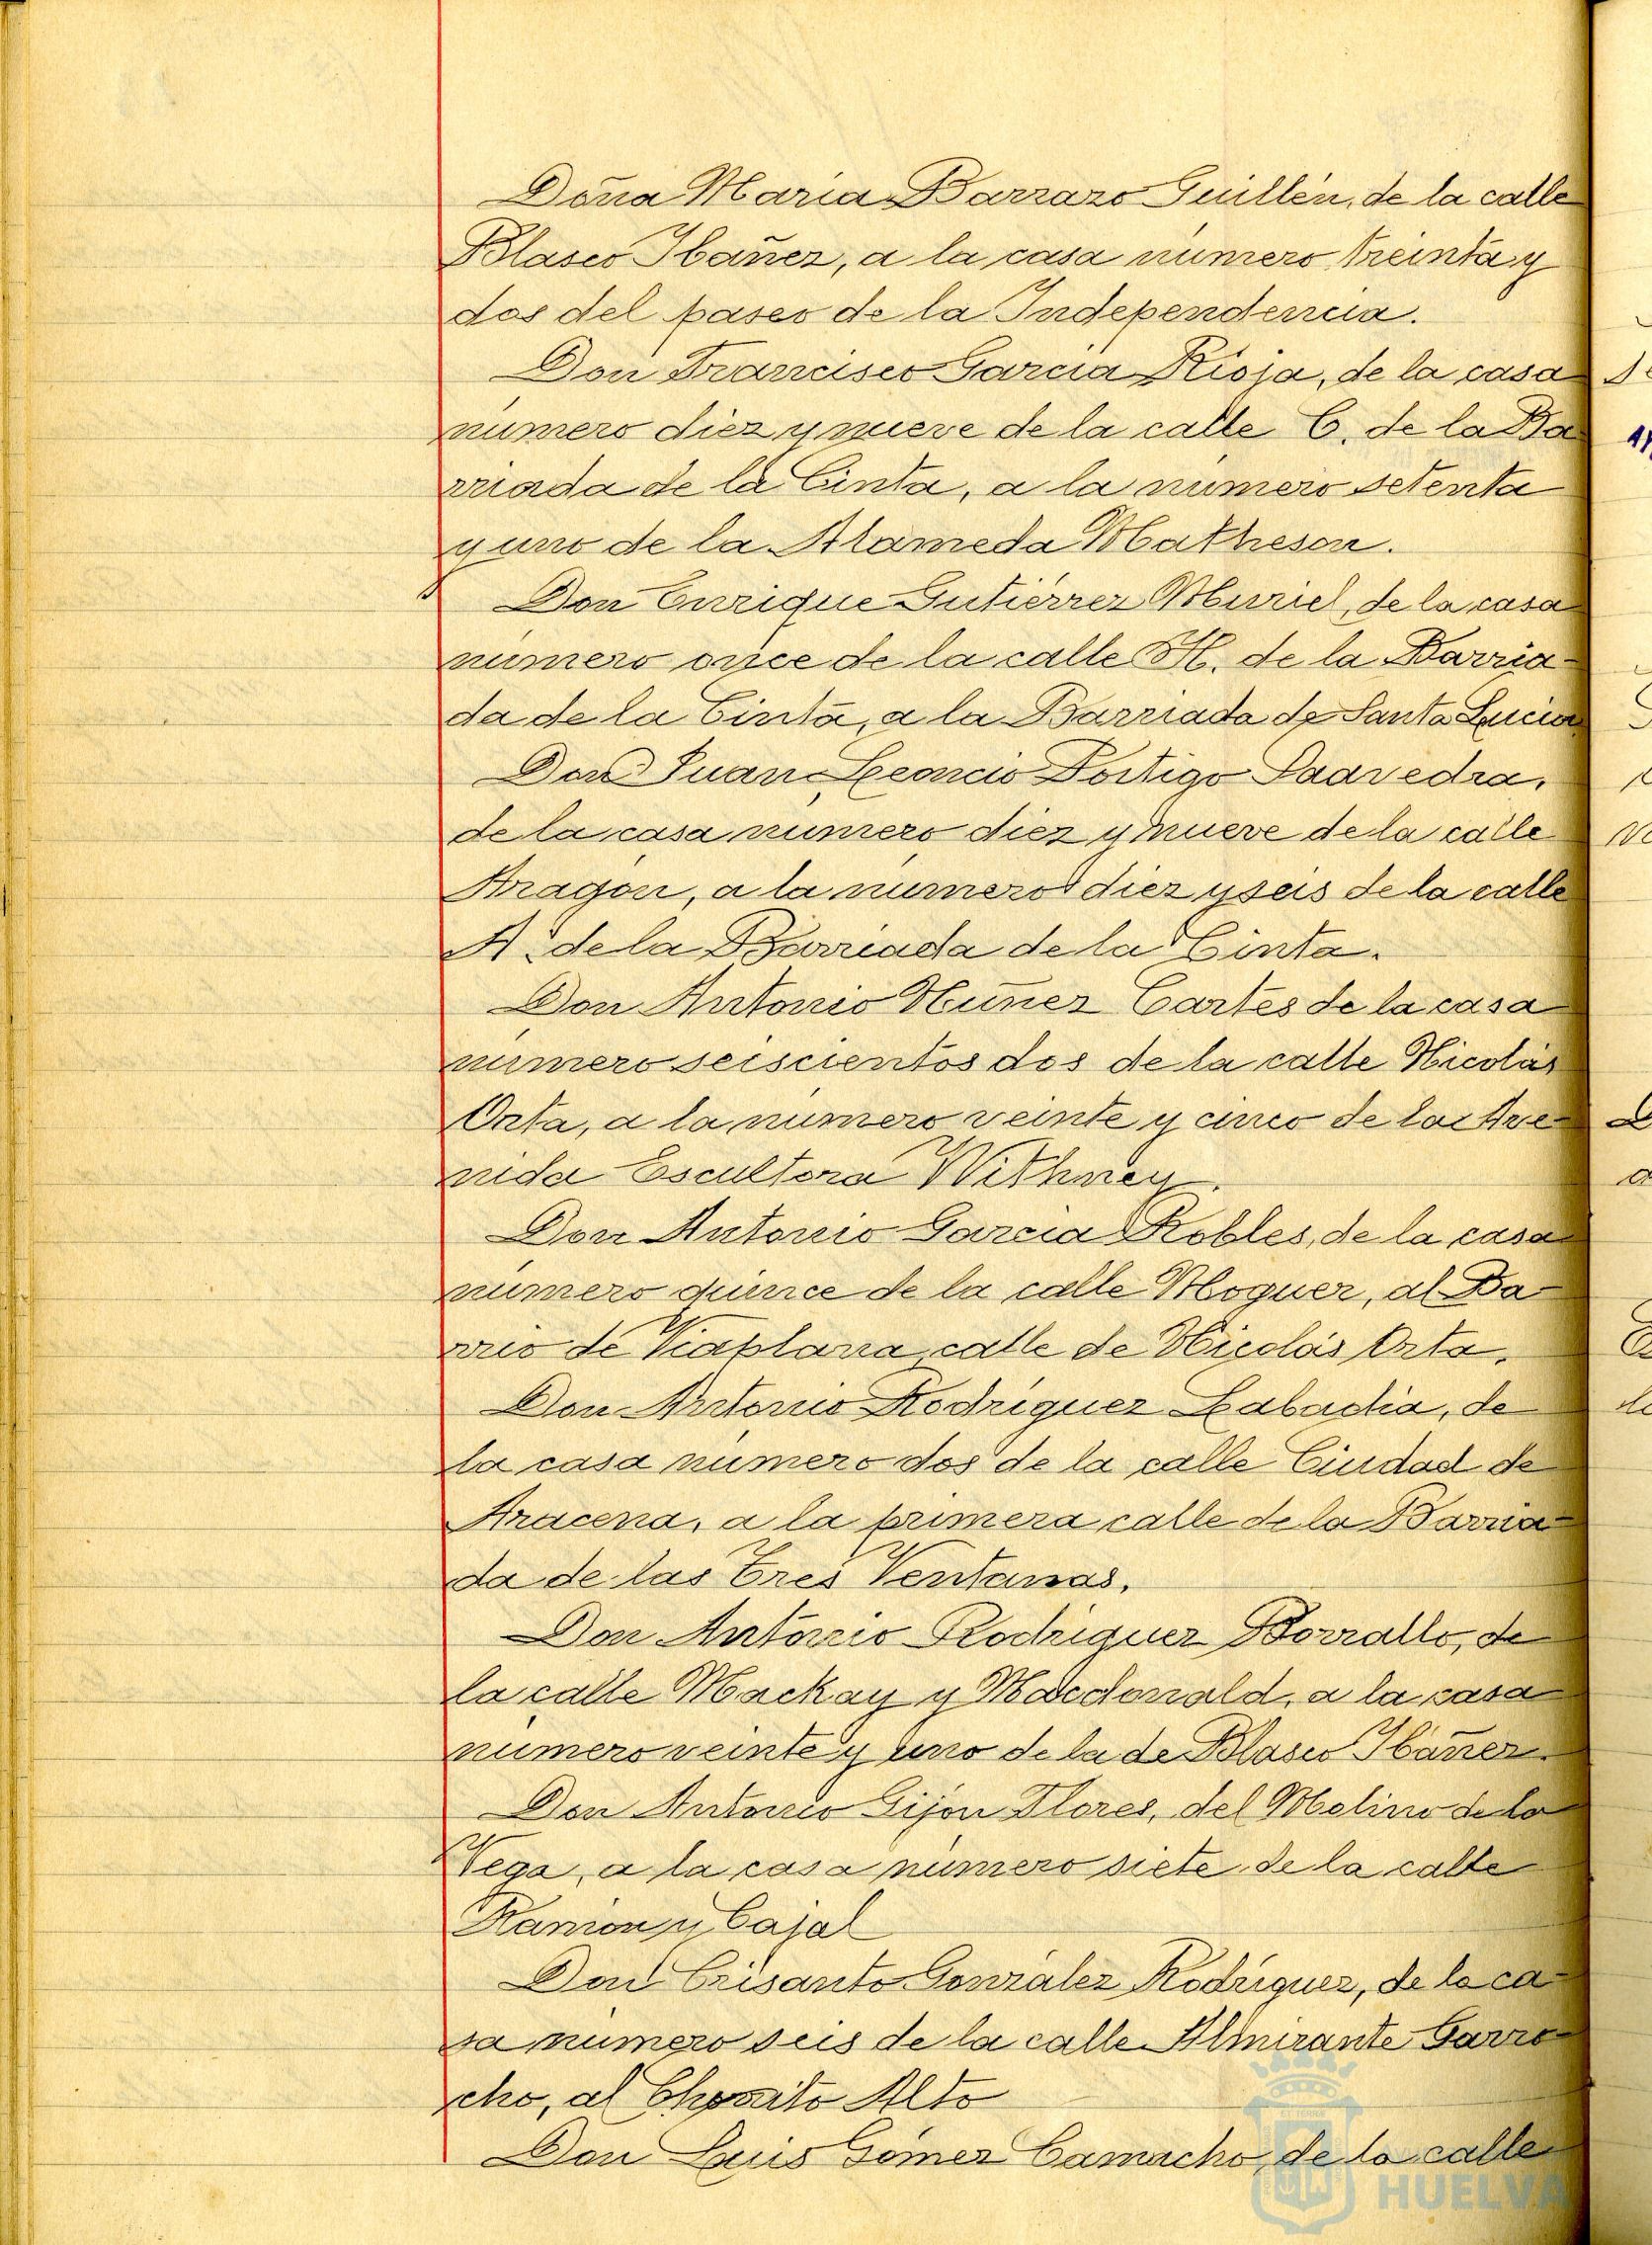 Doña María Barrazo Guillén, de la calle
Blasco Ibañez, a la casa número treinta y
dos del paseo de la Independencia.
Don Francisco García Rioja, de la casa
número diez y nueve de la calle C. de la Ba
rriada de la Cinta, a la número setenta
y uno de la Alameda Matheson.
Don Enrique Gutiérrez Muriel, de la casa
número once de la calle H. de la Barria-
da de la Cinta, a la Barriada de Santa Lucía
Don Juan Leoncio Postigo Saavedra,
de la casa número diez y nueve de la calle
Aragón, a la número diez y seis de la calle
A. de la Barriada de la Cinta.
Don Antonio Núñez Cartes de la casa
número seiscientos dos de la calle Nicolás
Orta, a la número veinte y cinco de la Ave-
nida Escultora Withney.
Don Antonio García Robles, de la casa
número quince de la calle Moguer, al Ba-
rrio de Viaplana, calle de Nicolás Orta.
Don Antonio Rodríguez Labadía, de
la casa número dos de la calle Ciudad de
Aracena, a la primera calle de la Barria-
da de las Tres Ventanas.
Don Antonio Rodríguez Borrallo, de
la calle Mackay y Macdonald, a la casa
número veinte y uno de la de Blasco Ibañez.
Don Antonio Gijón Flores, del Molino de la
Vega, a la casa número siete de la calle
Ramon y Cajal
Don Crisanto González Rodríguez, de la ca-
sa número seis de la calle Almirante Garro-
cho, al Chorrito Alto
Don Luis Gómez Camacho, de la calle
HUELVA